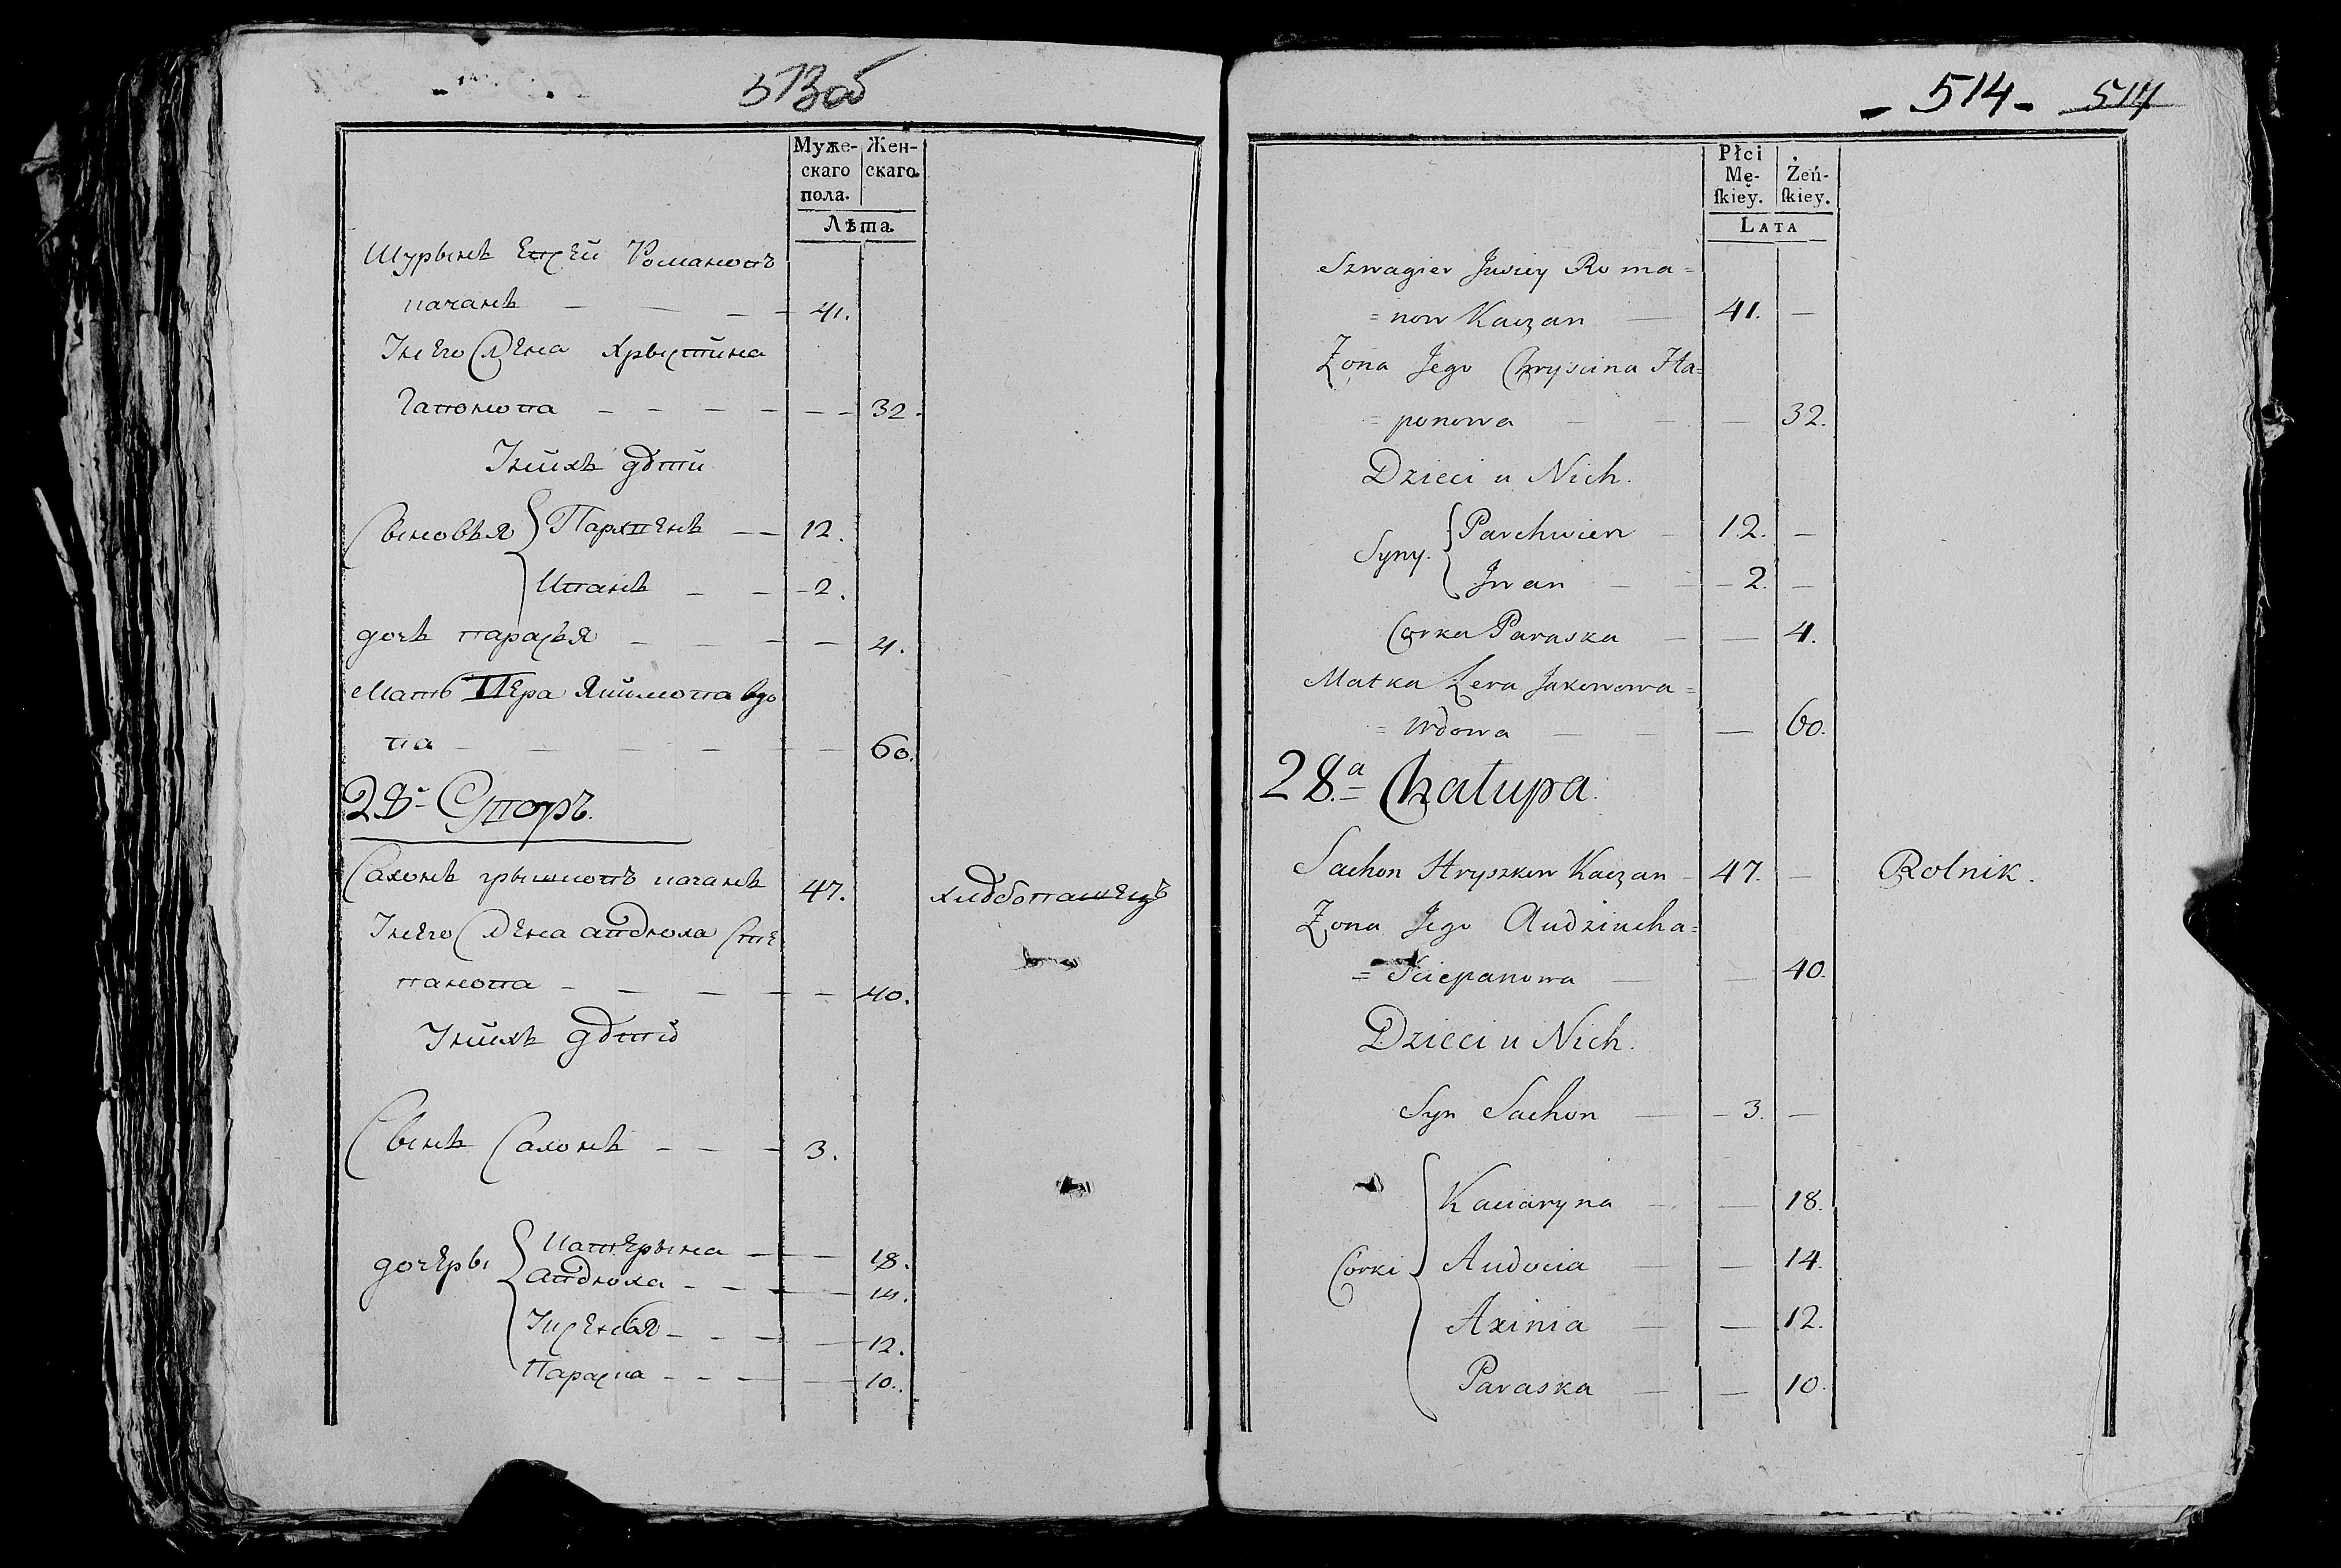 513об
Муже-
скаго
пола.
Жен-
скаго.
Лѣта.
Шурынъ Евсей Романовъ
качанъ — — — 41.
У него жена Хрыстина
Гапонова — — — — — — 32.
У нихъ дѣти
Сыновья Пархвенъ — — 12.
Иванъ — — — 2.
дочь Парасья — — — — 4.
Мать Вера Якимова вдо
ва — — — — — — 60.
28 Дворъ.
Сахонъ грышковъ качанъ 47. хлѣбопашецъ
У него жена авдюха Сте
панова — — — — — 40.
У нихъ дѣти
Сынъ Сахонъ — — — 3.
дочеры Катерына — — 18.
авдюха — — — — 14.
Ксенья — — — — 12.
Параска — — — — 10.
- 514 - 514
Płci
Mę-
ſkiéy.
Żeń-
ſkiey.
LATA
Szwagier Jwsiey Roma=
=now Kaczan — 41. —
Żona Jego Chryscina Ha=
=ponowa — — — 32.
Dzieci u Nich.
Syny. Parchwien — 12. —
Jwan — — — 2. —
Corka Paraska — — 4.
Matka Jakowowa=
=wdowa — — — 60.
28.a Chałupa.
Sachon Hryszkow Kaczan — 47. — Rolnik.
Żona Jego Audziucha=
=Sciepanowa — — 40.
Dzieci u Nich.
Syn Sachon — — 3. —
Córki Kaciaryna — — 18.
Audocia — — 14.
Axinia — — 12.
Paraska — — 10.